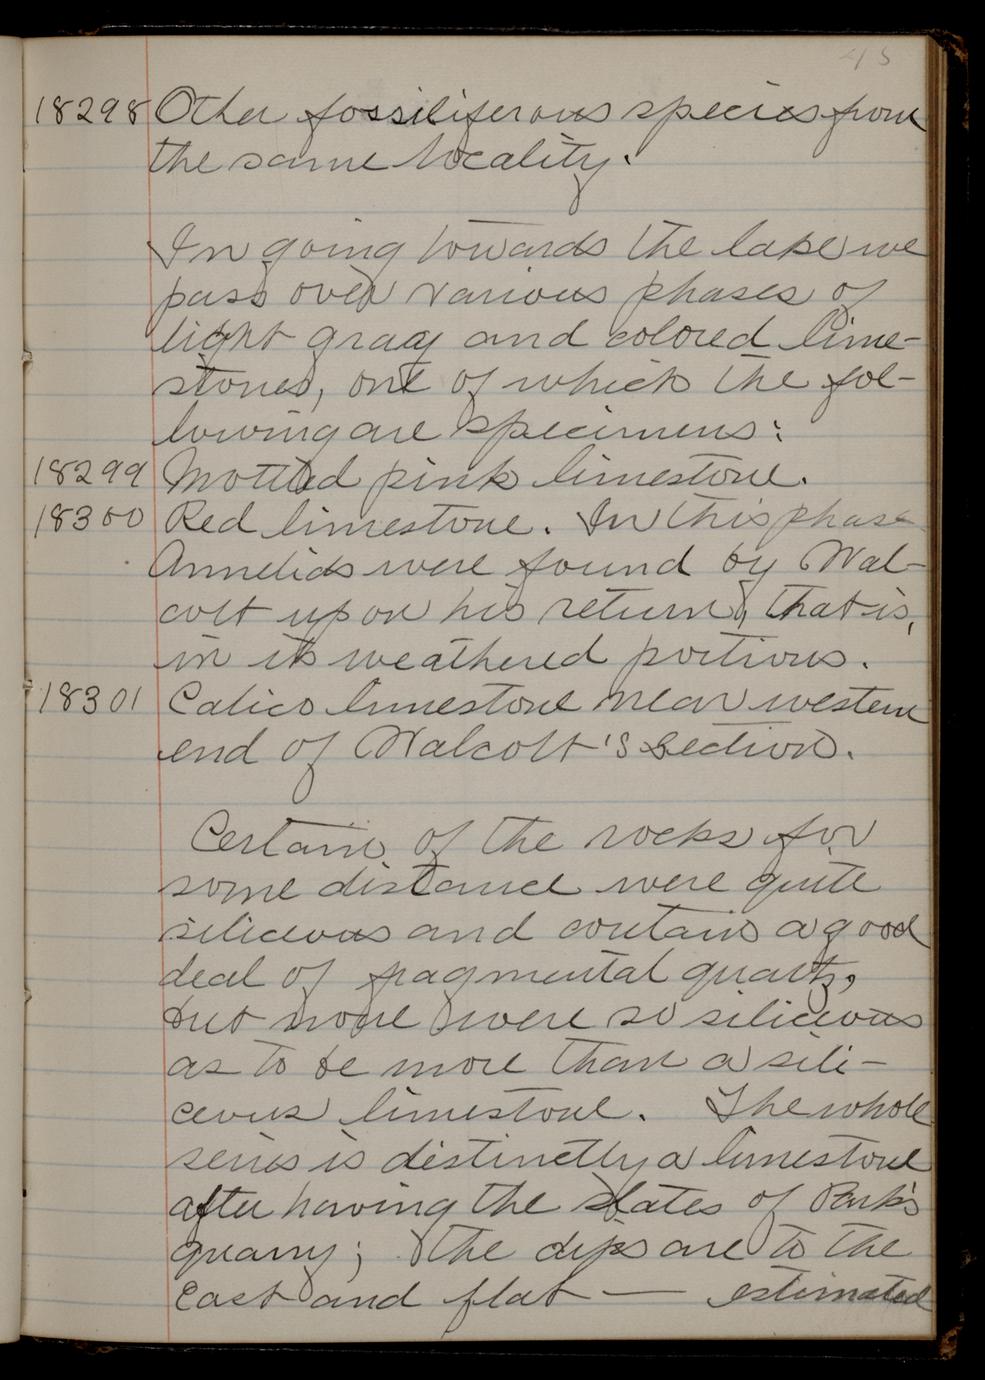 45
18298 Other fossiliferous species from
the same locality.
In going towards the lake we
pass over various phases of
light gray and colored lime-
stones, one of which the fol-
lowing are specimens:
18299 Mottled pink limestone.
18300 Red limestone. In this phase
Annelids were found by Wal-
cott upon his return, that is,
in its weathered portions.
18301 Calico limestone near western
end of Walcott's section.
Certain of the rocks for
some distance were quite
siliceous and contain a good
deal of fragmental quartz,
but none were so siliceous
as to be more than a sili-
ceous limestone. The whole
series is distinctly a limestone
after having the slates of Park's
quarry; the dips are to the
East and flat — estimated